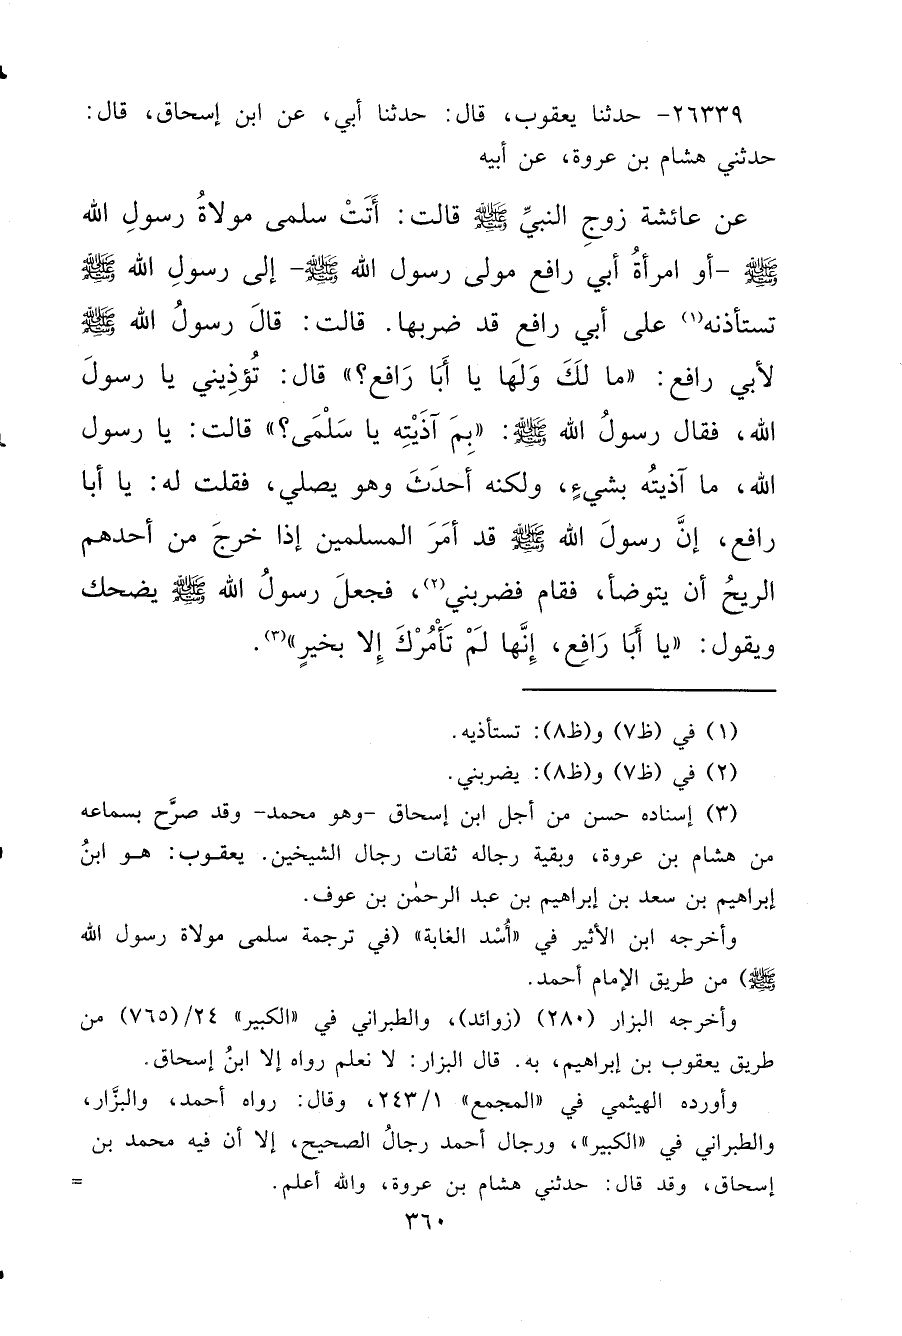 ٢٦٣٣٩- حدثنا يعقوب، قال: حدثنا أبي، عن ابن إسحاق، قال:
حدثني هشام بن عروة، عن أبيه
عن عائشة زوجِ النبيِّ ﷺ قالت: أَتَتْ سلمى مولاةُ رسولِ الله
ﷺ -أو امرأةُ أبي رافع مولى رسول الله ﷺ- إلى رسولِ الله ﷺ
تستأذنه(١) على أبي رافع قد ضربها. قالت: قالَ رسولُ الله ﷺ
لأبي رافع: «ما لكَ وَلَها يا أَبَا رَافع؟» قال: تُؤذِيني يا رسولَ
الله، فقال رسولُ الله ﷺ: «بِمَ آذَيْتِه يا سَلْمَى؟» قالت: يا رسول
الله، ما آذيتُه بشيءٍ، ولكنه أحدَثَ وهو يصلي، فقلت له: يا أبا
رافع، إنَّ رسولَ الله ﷺ قد أمَرَ المسلمين إذا خرجَ من أحدهم
الريحُ أن يتوضأ، فقام فضربني(٢)، فجعلَ رسولُ الله ﷺ يضحك
ويقول: «يا أَبَا رَافِع، إِنَّها لَمْ تَأْمُرْكَ إِلا بخيرٍ»(٣).
(١) في (ظ٧) و(ظ٨): تستأذيه.
(٢) في (ظ٧) و(ظ٨): يضربني.
(٣) إسناده حسن من أجل ابن إسحاق -وهو محمد- وقد صرَّح بسماعه
من هشام بن عروة، وبقية رجاله ثقات رجال الشيخين. يعقوب: هو ابنُ
إبراهيم بن سعد بن إبراهيم بن عبد الرحمٰن بن عوف.
وأخرجه ابن الأثير في «أُسْد الغابة» (في ترجمة سلمى مولاة رسول الله
ﷺ) من طريق الإمام أحمد.
وأخرجه البزار (٢٨٠) (زوائد)، والطبراني في «الكبير» ٢٤/(٧٦٥) من
طريق يعقوب بن إبراهيم، به. قال البزار: لا نعلم رواه إلا ابنُ إسحاق.
وأورده الهيثمي في «المجمع» ٢٤٣/١، وقال: رواه أحمد، والبزَّار،
والطبراني في «الكبير»، ورجال أحمد رجالُ الصحيح، إلا أن فيه محمد بن
إسحاق، وقد قال: حدثني هشام بن عروة، والله أعلم. =
٣٦٠